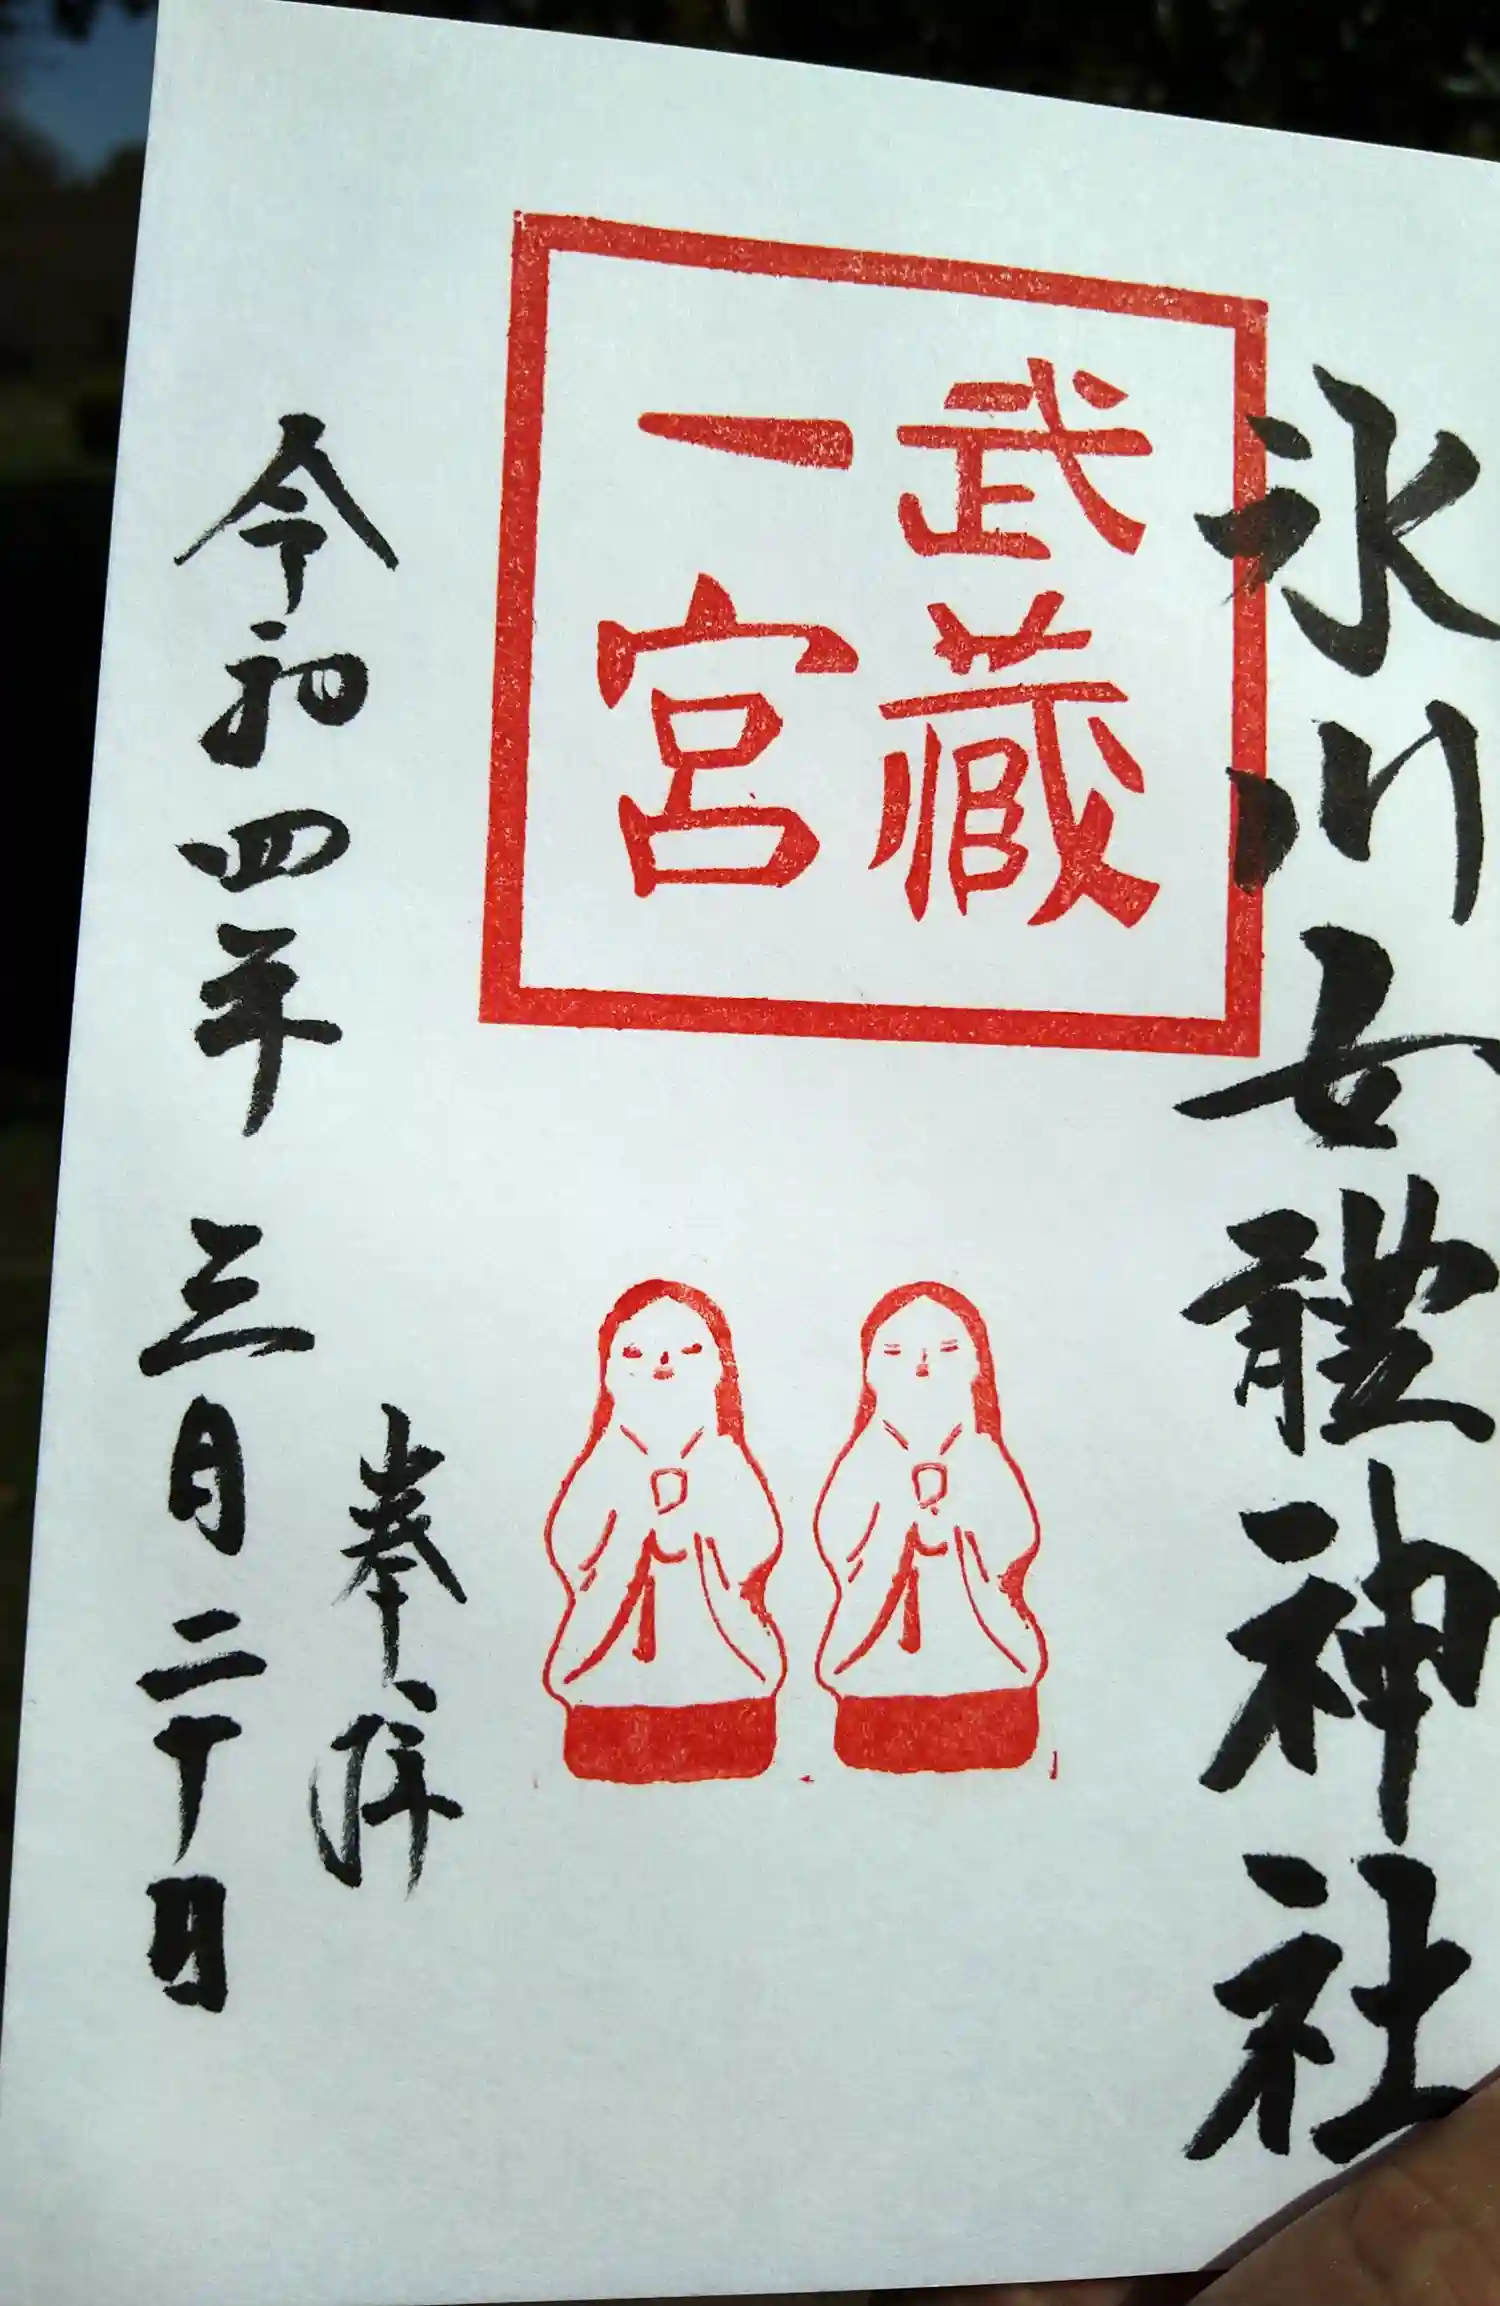 氷川女體神社
武藏
一宮
奉拝
令和四年三月二十日